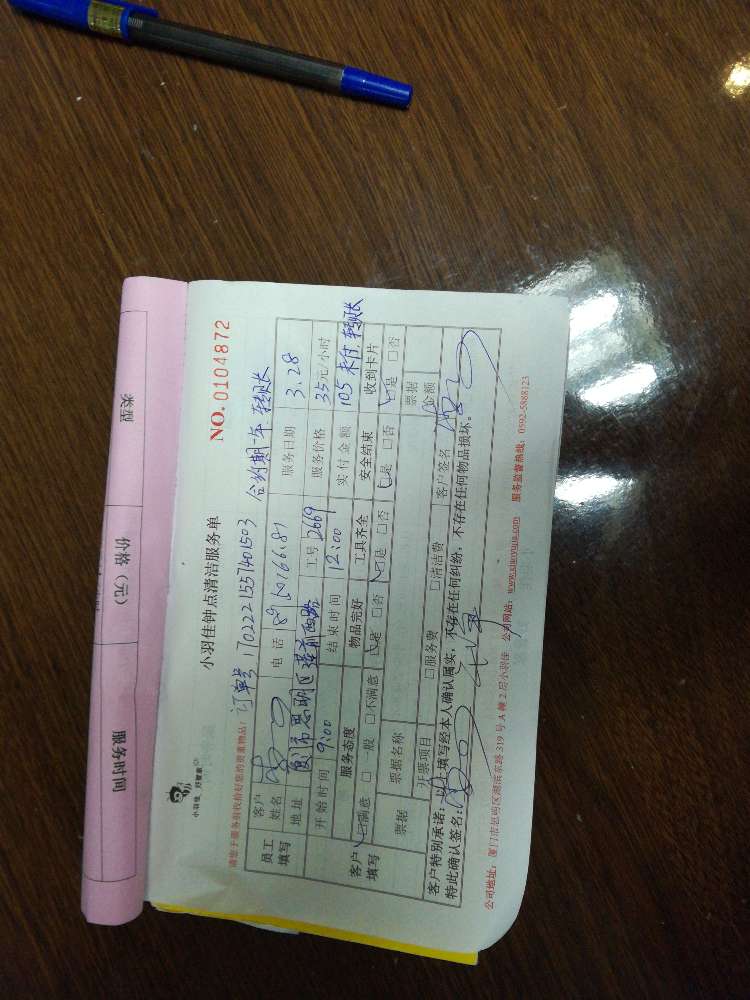 类型
价格（元）
服务时间
小羽佳钟点清洁服务单
NO. 0104872
小羽佳，好管家
请您于服务前收拾好您的贵重物品：
订单号 1702221557401503 合约期一年 转账
员工填写
客户姓名
电话
服务日期 3.28
地址 厦门市思明区莲前西路
工号 2669
服务价格 35元/小时
开始时间 9:00
结束时间 12:00
实付金额 105 未付，转账
客户填写
服务态度
物品完好
工具齐全
安全结束
收到卡片
☑满意 □一般 □不满意
☑是 □否
☑是 □否
☑是 □否
☑是 □否
票据
票据名称
票据金额
开票项目
□服务费 □清洁费
客户签名
客户特别承诺：以上填写经本人确认属实，不存在任何纠纷，不存在任何物品损坏。
特此确认签名：
公司地址：厦门市思明区湖滨东路 319 号 A 幢 2 层小羽佳 公司网站：www.xiaoyujia.com 服务监督热线：0592-5888123